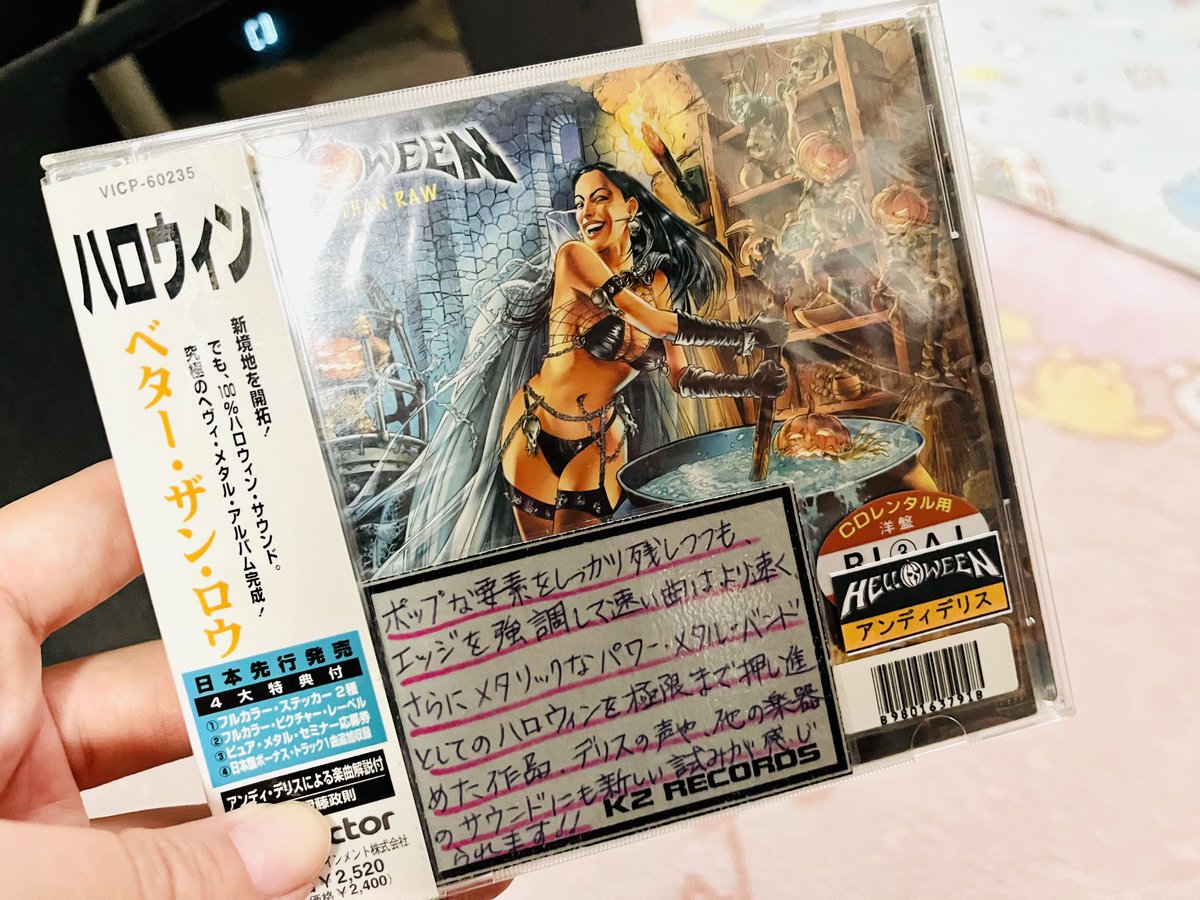 VICP-60235
ハロウィン
ベター・ザン・ロウ
新境地を開拓!
でも、100%ハロウィン・サウンド。
究極のヘヴィ・メタル・アルバム完成!
日本先行発売
4大特典付
①フルカラー・ステッカー2種
②フルカラー・ピクチャー・レーベル
③ピュア・メタル・セミナー応募券
④日本盤ボーナス・トラック1曲追加収録
アンディ・デリスによる楽曲解説付
藤政則
ctor
インメント株式会社
¥2,520
価格¥2,400)
OWEEN
THAN RAW
ポップな要素をしっかり残しつつも、
エッジを強調して速い曲はより速く
さらにメタリックなパワー・メタル・バンド
としてのハロウィンを極限まで押し進
めた作品。デリスの声や、他の楽器
のサウンドにも新しい試みが感じ
られます!!
K2 RECORDS
CDレンタル用
洋盤
HELLOWEEN
アンディデリス
B980163791B